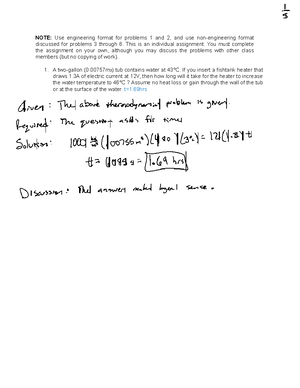 1
5
NOTE: Use engineering format for problems 1 and 2, and use non-engineering format
discussed for problems 3 through 8. This is an individual assignment. You must complete
the assignment on your own, although you may discuss the problems with other class
members (but no copying of work).
1. A two-gallon (0.00757m³) tub contains water at 43°C. If you insert a fishtank heater that
draws 1.3A of electric current at 12V, then how long will it take for the heater to increase
the water temperature to 46°C? Assume no heat loss or gain through the wall of the tub
or at the surface of the water. t=1.69hrs
Given: The above thermodynamic problem is given.
Required: The question asks for time
Solution:
t = = 1.69 hrs
Discussion: The answer makes sense.